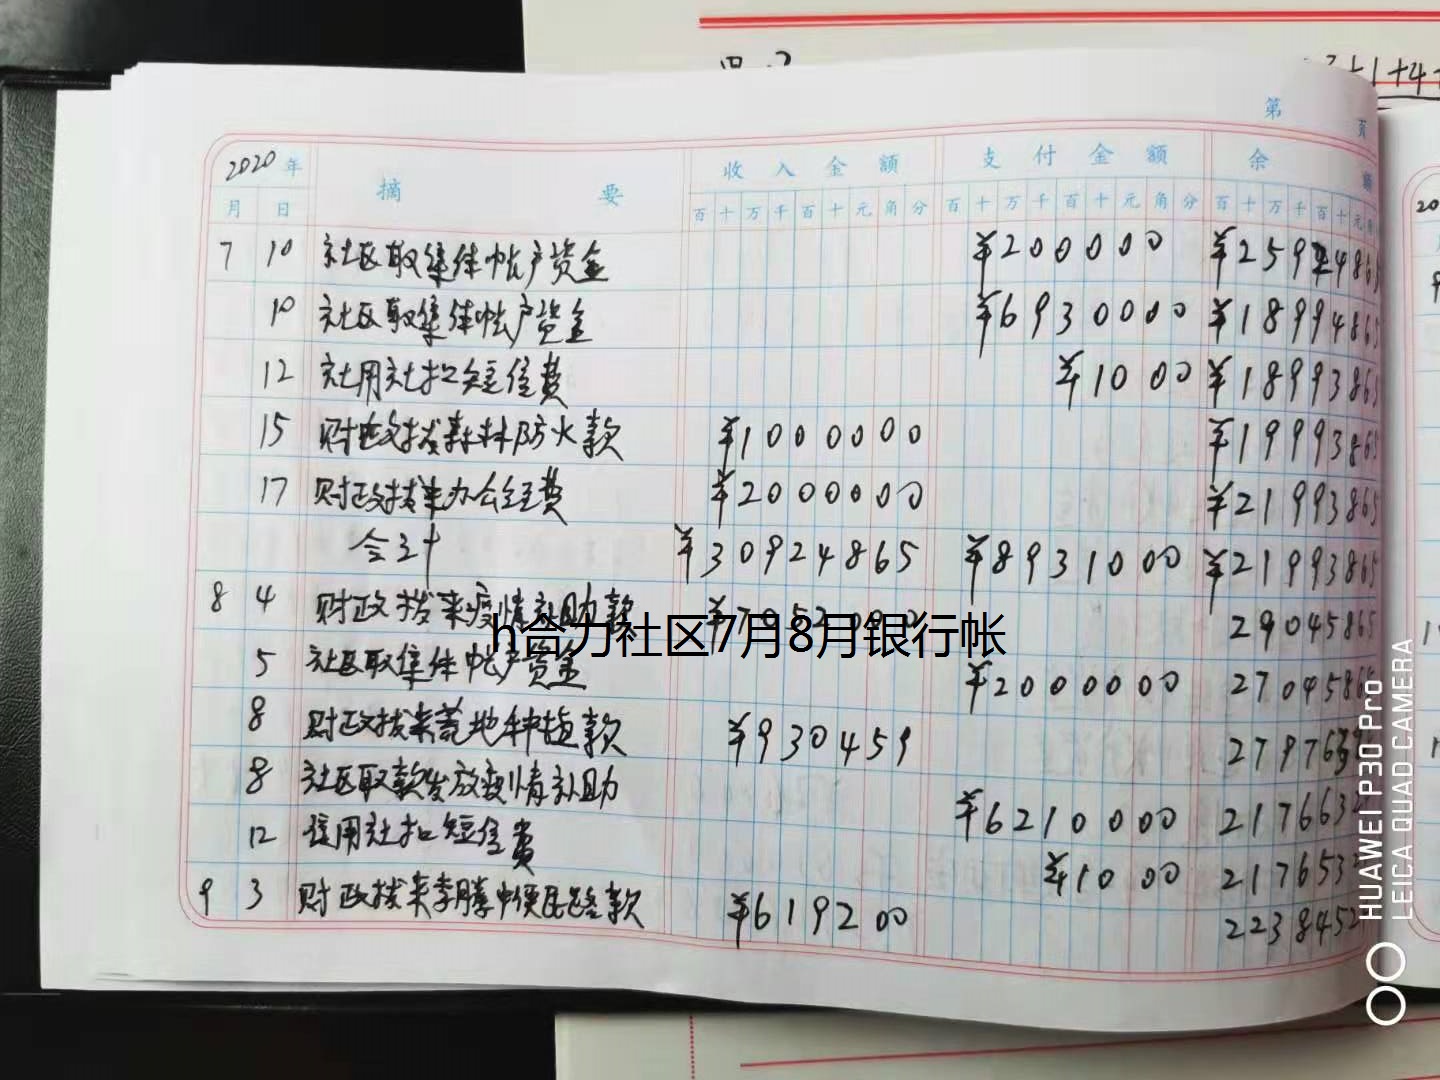 第 页
2020年 摘 要 收入金额 支付金额 余额
月 日 百十万千百十元角分 百十万千百十元角分 百十万千百十元角
7 10 社区取集体帐户资金 ¥200000 ¥25924865
10 社区取集体帐户资金 ¥6930000 ¥18994865
12 社用社扣短信费 ¥1000 ¥18993865
15 财政拨森林防火款 ¥1000000 ¥19993865
17 财政拨来办公经费 ¥2000000 ¥21993865
合计 ¥30924865 ¥8931000 ¥21993865
8 4 财政拨来疫情补助款 ¥7052000 29045865
h合力社区7月8月银行帐
5 社区取集体帐户资金 ¥2000000 27045865
8 财政拨来荒地种植款 ¥930459 279763
8 社区取款发放疫情补助 ¥6210000 2176632
12 信用社扣短信费 ¥1000 2176532
9 3 财政拨来李腾屯便民路款 ¥619200 2238452
HUAWEI P30 Pro
LEICA QUAD CAMERA